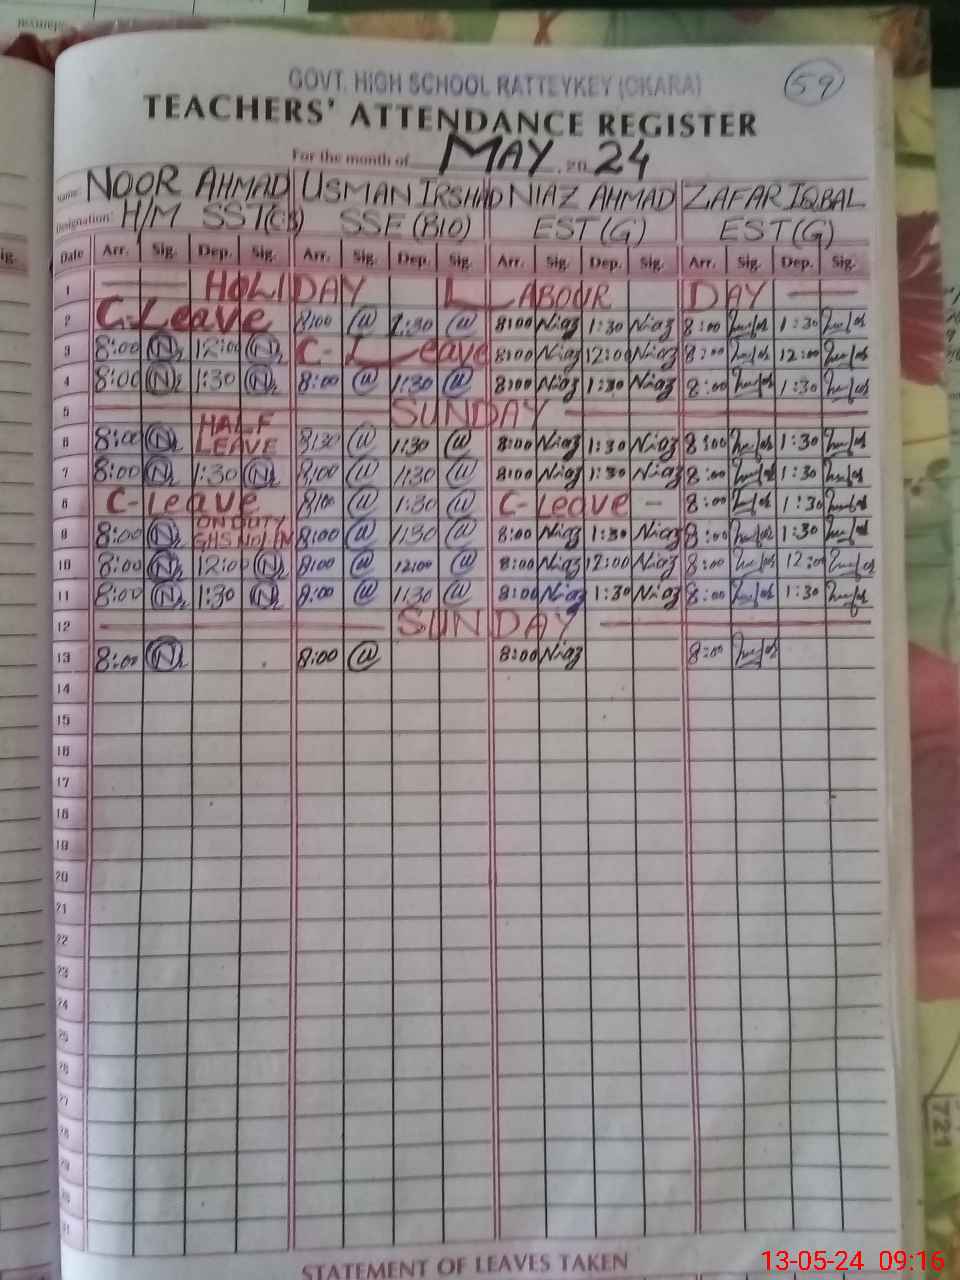 GOVT. HIGH SCHOOL RATTEYKEY (OKARA)
59
TEACHERS' ATTENDANCE REGISTER
For the month of MAY 20 24
Name: NOOR AHMAD USMAN IRSHAD NIAZ AHMAD ZAFAR IQBAL
Designation: H/M SST(CS) SSE (BIO) EST (G) EST (G)
Date Arr. Sig. Dep. Sig. Arr. Sig. Dep. Sig. Arr. Sig. Dep. Sig. Arr. Sig. Dep. Sig.
1 HOLIDAY LABOUR DAY
2 C-Leave 8:00 1:30 8:00 Niaz 1:30 Niaz 8:00 1:30
3 8:00 N 12:00 N C-Leave 8:00 Niaz 12:00 Niaz 8:00 12:00
4 8:00 N 1:30 N 8:00 1:30 8:00 Niaz 1:30 Niaz 8:00 1:30
5 SUNDAY
6 8:00 N HALF LEAVE 8:30 1:30 8:00 Niaz 1:30 Niaz 8:00 1:30
7 8:00 N 1:30 N 8:00 1:30 8:00 Niaz 1:30 Niaz 8:00 1:30
8 C-Leave 8:00 1:30 C-Leave - 8:00 1:30
9 8:00 N ON DUTY GHS 8:00 1:30 8:00 Niaz 1:30 Niaz 8:00 1:30
10 8:00 N 12:00 N 8:00 12:00 8:00 Niaz 12:00 Niaz 8:00 12:00
11 8:00 N 1:30 N 8:00 1:30 8:00 Niaz 1:30 Niaz 8:00 1:30
12 SUNDAY
13 8:00 N 8:00 8:00 Niaz 8:00
14
15
16
17
18
19
20
21
22
23
24
25
26
27
28
29
30
31
STATEMENT OF LEAVES TAKEN
721
13-05-24 09:16